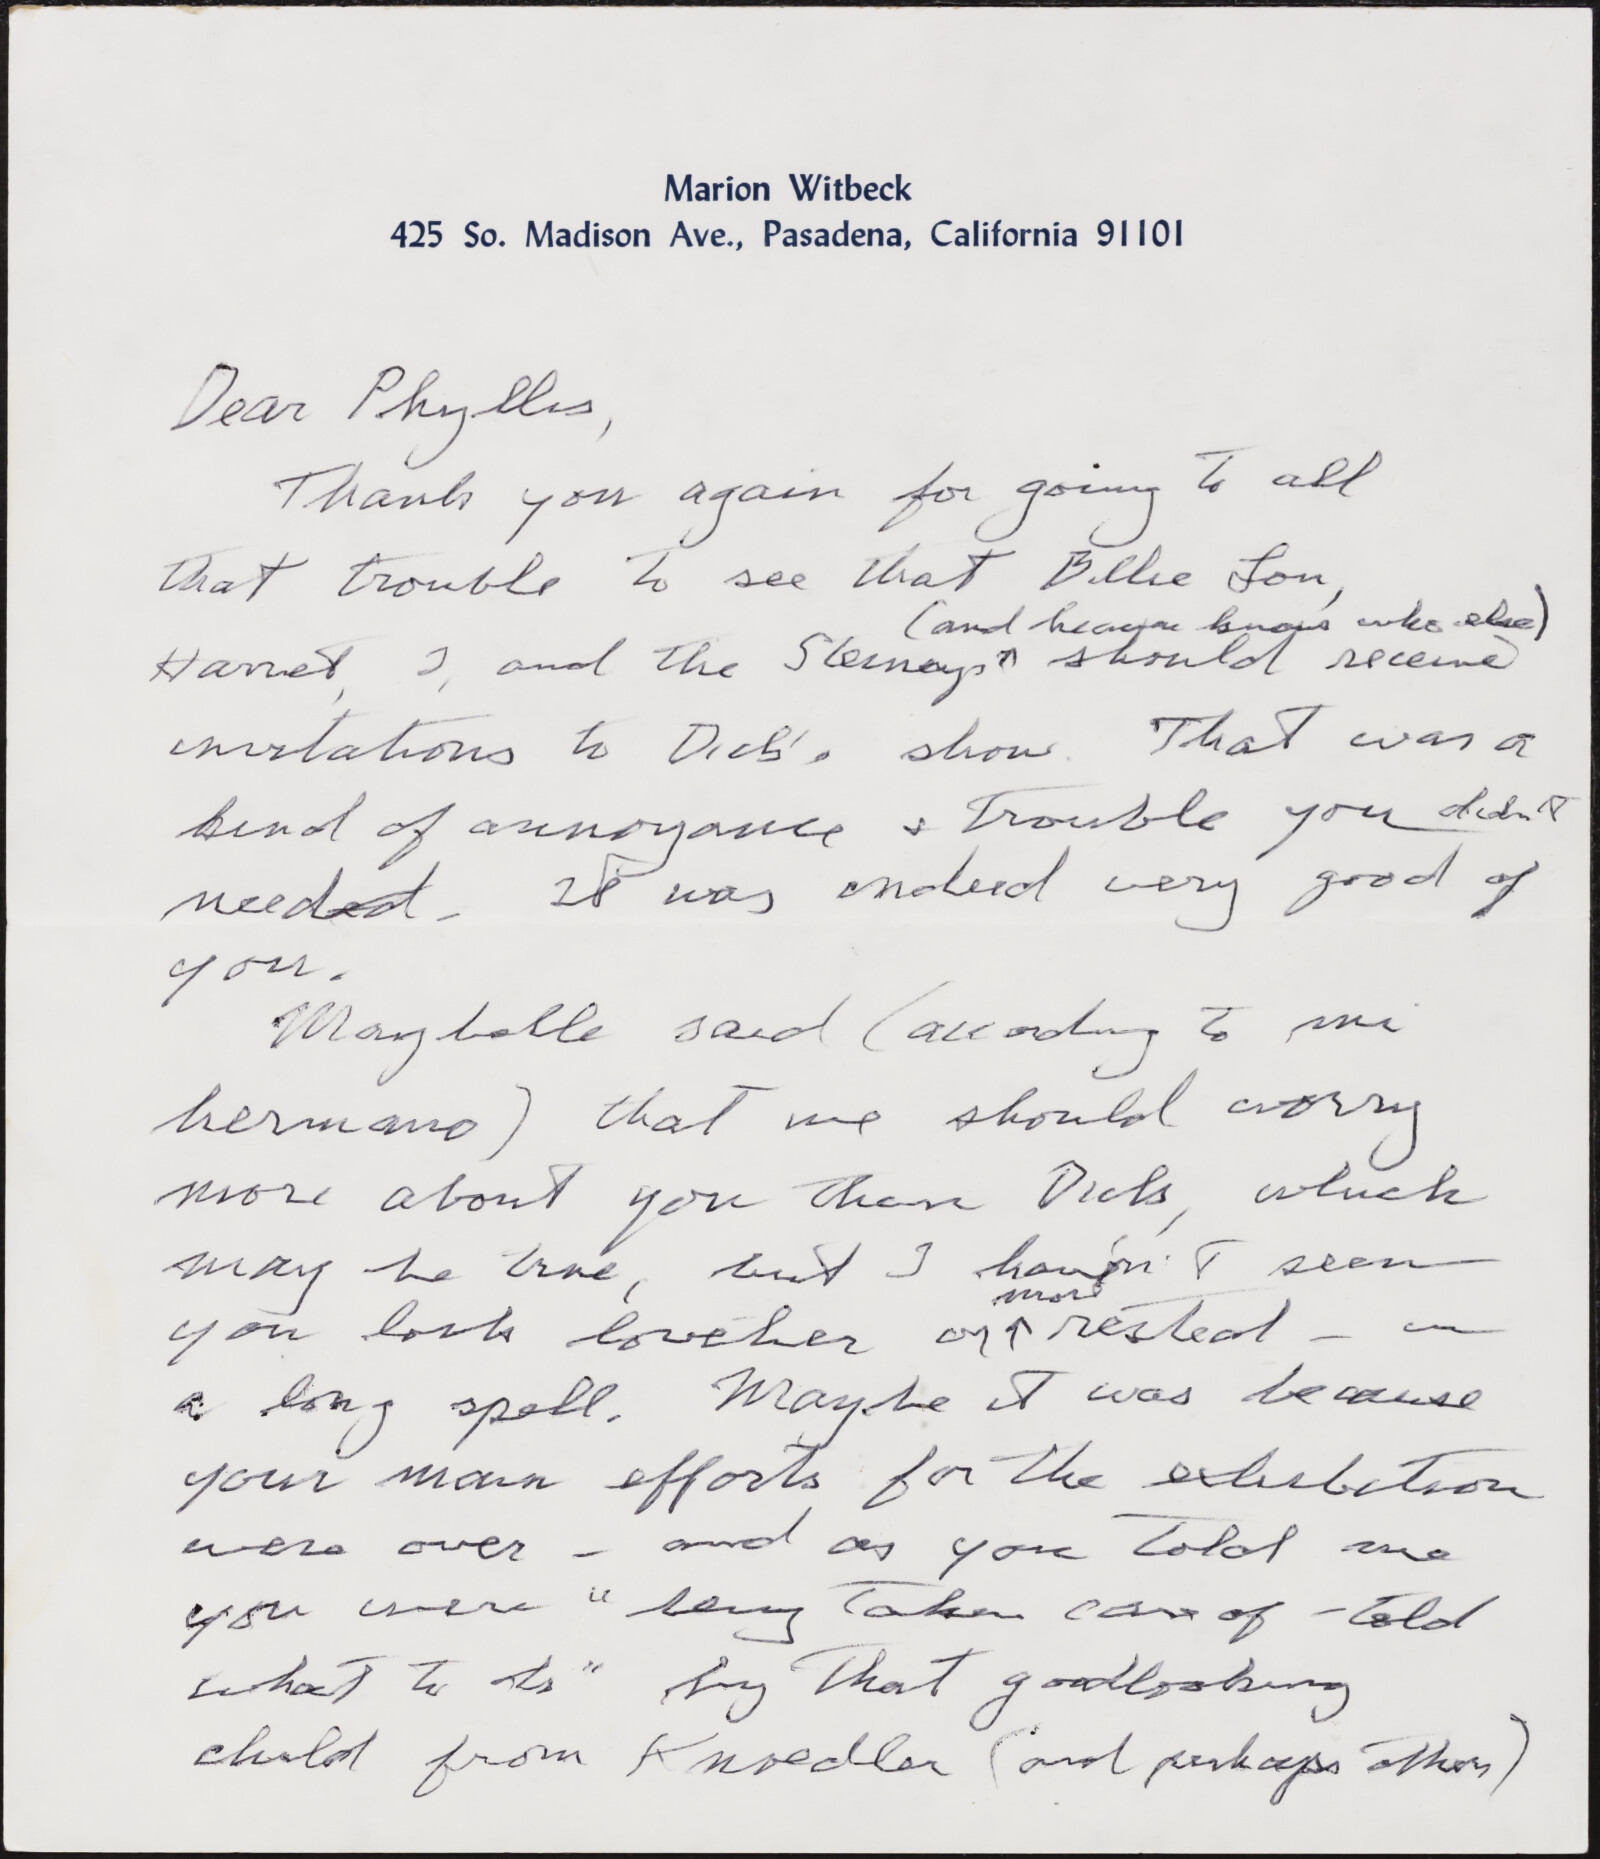 Marion Witbeck
425 So. Madison Ave., Pasadena, California 91101
Dear Phyllis,
Thank you again for going to all
that trouble to see that Billie Lou,
(and heaven knows who else)
Harriet, I, and the should receive
invitations to Dick's show. That was a
kind of annoyance & trouble you didn't
need. It was indeed very good of
you.
Maybelle said (according to mi
hermano) that we should worry
more about you than Dick, which
may be true, but I haven't seen
more
you look lovelier or rested - in
a long spell. Maybe it was because
your main efforts for the exhibition
were over - and as you told me
you were "being taken care of - told
what to do" by that goodlooking
child from Knoedler (and perhaps others)